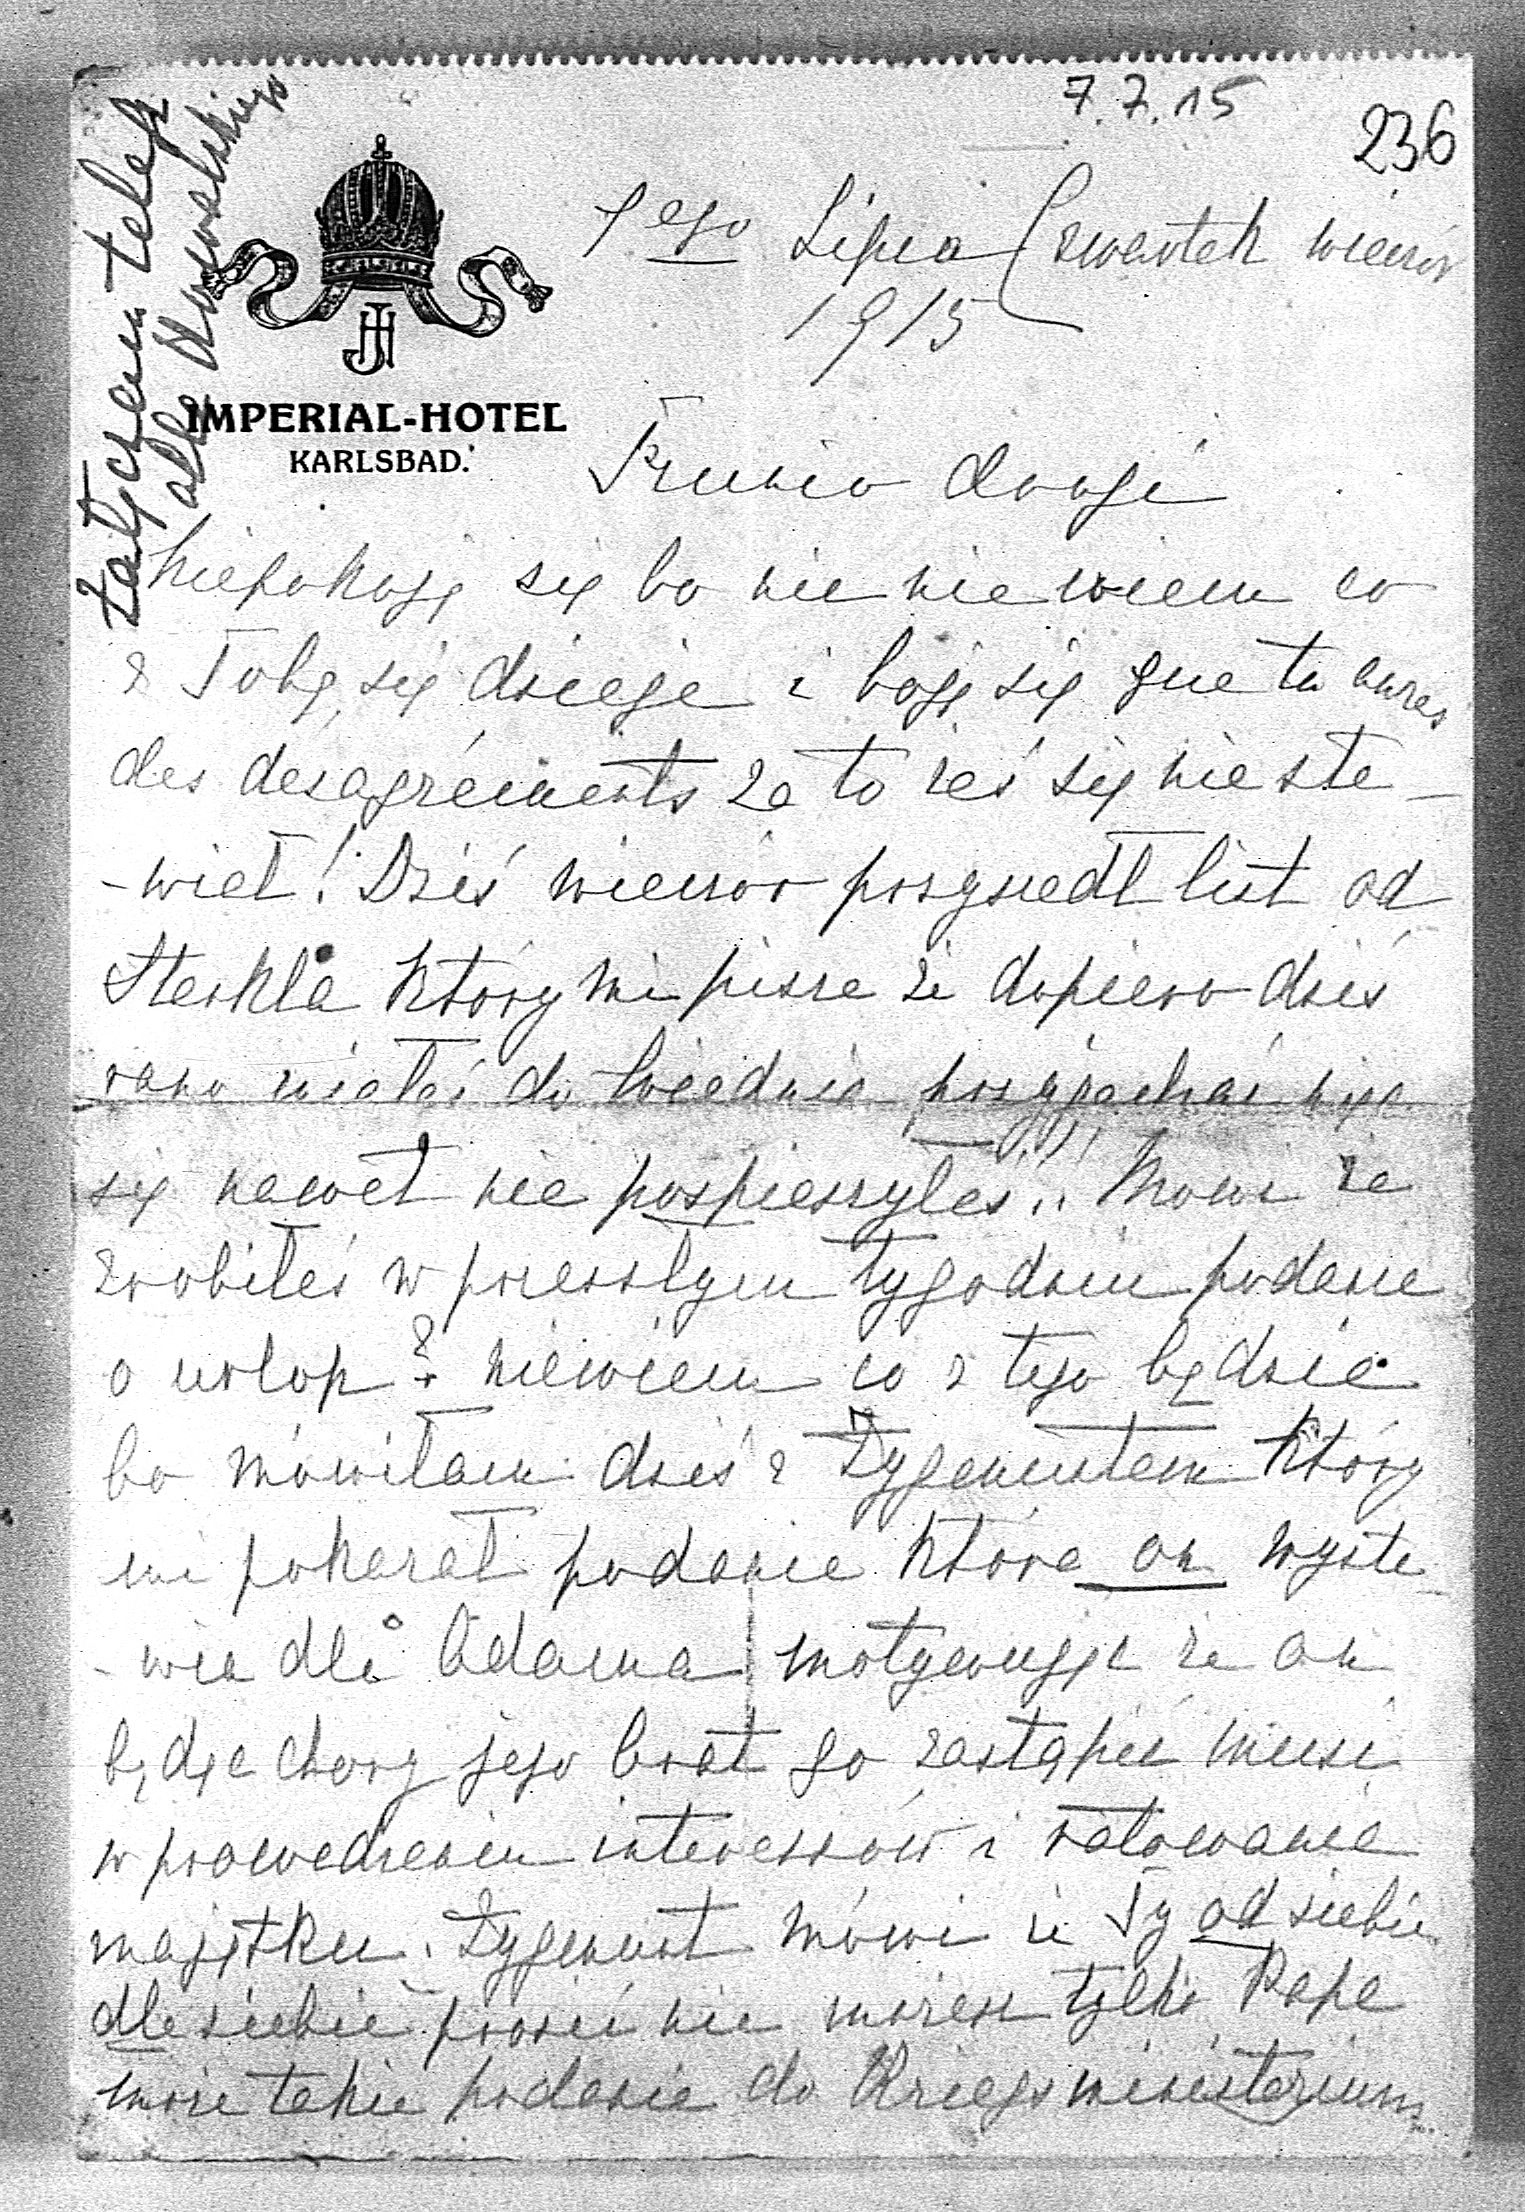 7.7.15
236
1ego Lipca Czwartek wieczór
1915
załączam telegr
IMPERIAL-HOTEL
KARLSBAD.
drogi
Niepokoję się bo nic nie wiem co
z Tobą się dzieje i boję się que tu auras
des désagréments za to żeś się nie sta-
-wił! Dziś wieczór przyszedł list od
Sterkla który mi pisze że dopiero dziś
rano miałeś do Wiednia przyjechać więc
się nawet nie pospieszyłeś!! Mówi że
zrobiłeś w przeszłym tygodniu podanie
o urlop? niewiem co z tego będzie
bo mówiłam dziś z Zygmuntem który
mi pokazał podanie które on wysta-
-wia dla Adama motywując że on
będąc chory jego brat go zastąpić musi
w prowadzeniu interessów i ratowania
majątku. Zygmunt mówi że Ty od siebie
dla siebie prosić nie możesz tylko Papa
może takie podanie do Kriegsministerium